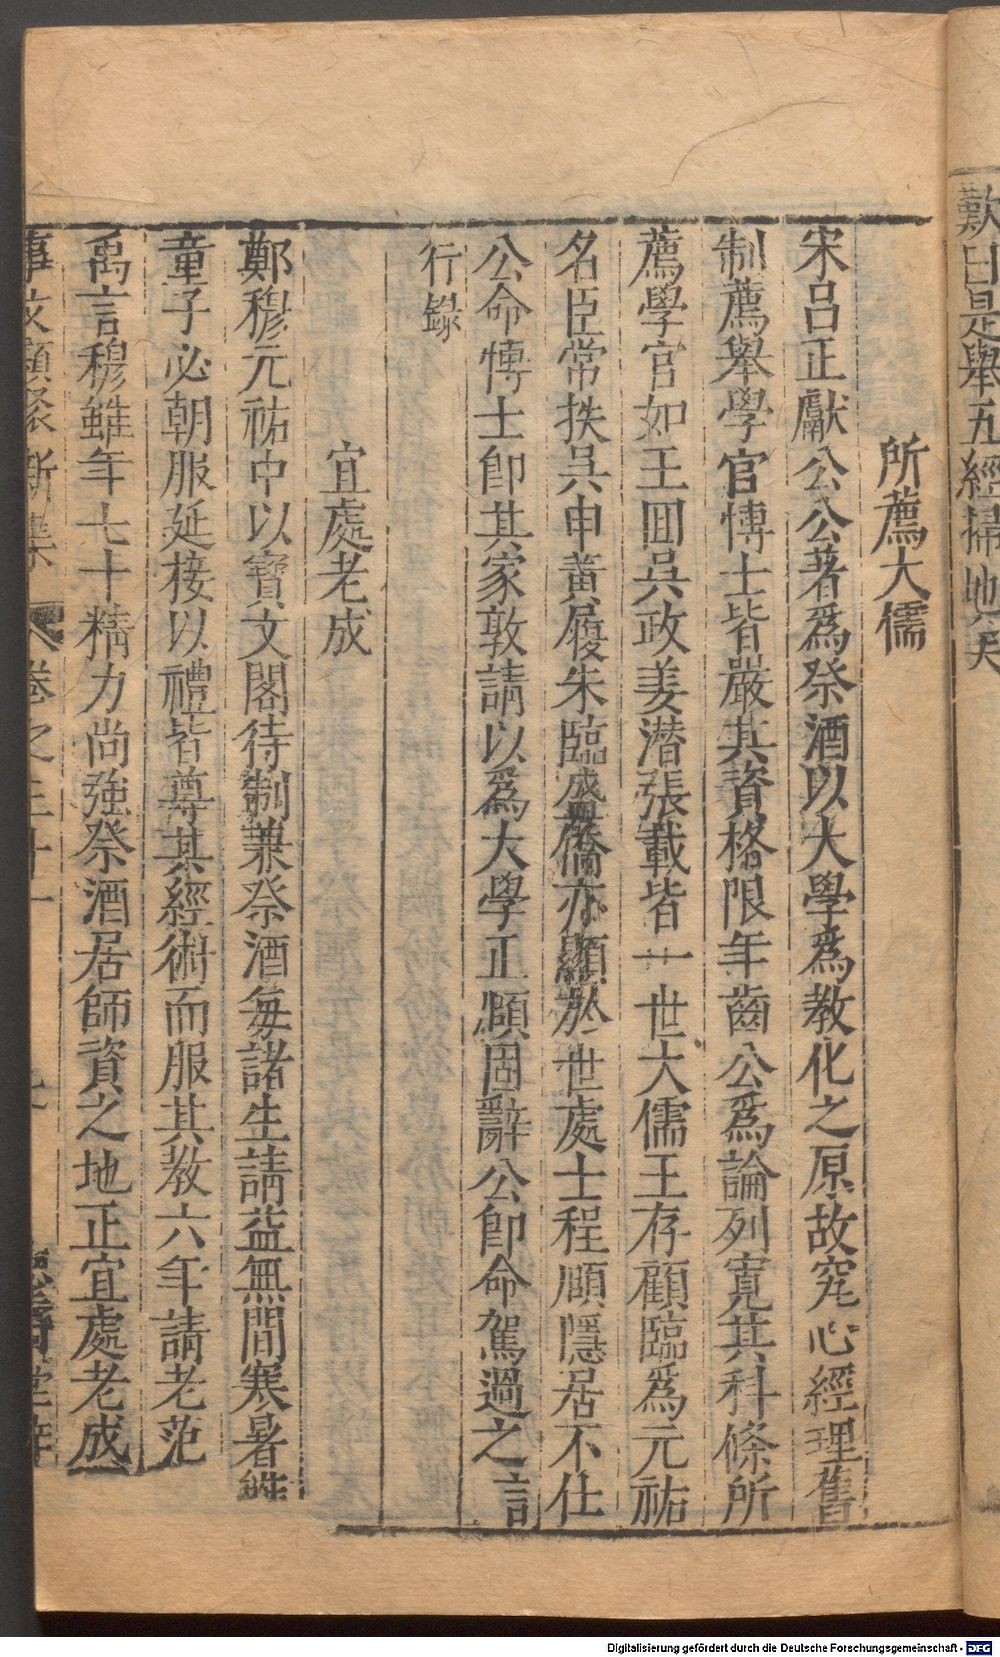 歎曰是舉五經掃地矣
所薦大儒
宋呂正獻公公著爲祭酒以大學爲教化之原故究心經理舊
制薦舉學官博士皆嚴其資格限年齒公爲論列寬其科條所
薦學官如王囬吳政姜潛張載皆一世大儒王存顧臨爲元祐
名臣常抶吳申黄履朱臨盛僑亦顯於世處士程頤隱居不仕
公命博士卽其家敦請以爲大學正頤固辭公卽命駕過之言
行録
宜處老成
鄭穆元祐中以寳文閣待制兼祭酒每諸生請益無間寒暑雖
童子必朝服延接以禮皆尊其經術而服其教六年請老范
禹言穆雖年七十精力尚強祭酒居師資之地正宜處老成
事文類聚新集 卷之三十一
Digitalisierung gefördert durch die Deutsche Forschungsgemeinschaft - DFG